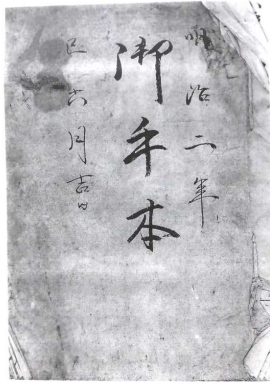 明治二年
御手本
巳六月吉日